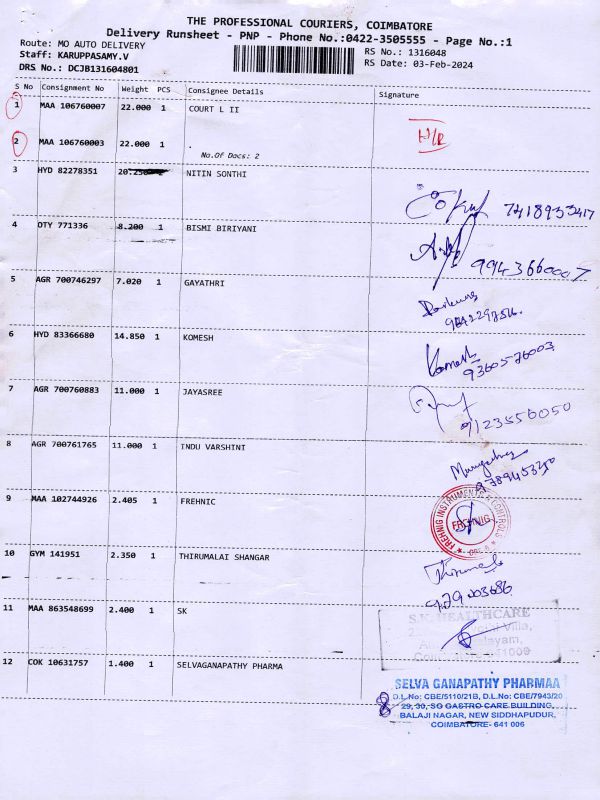 THE PROFESSIONAL COURIERS, COIMBATORE
Delivery Runsheet - PNP - Phone No.:0422-3505555 - Page No.:1
Route: MO AUTO DELIVERY
RS No.: 1316048
Staff: KARUPPASAMY.V
RS Date: 03-Feb-2024
DRS No.: DCJB131604801
S No Consignment No Weight PCS Consignee Details Signature
1 MAA 106760007 22.000 1 COURT L II
H/R
2 MAA 106760003 22.000 1 .
No.Of Docs: 2
3 HYD 82278351 20.250 NITIN SONTHI
7418933417
4 OTY 771336 8.200 1 BISMI BIRIYANI
9943660007
5 AGR 700746297 7.020 1 GAYATHRI
6 HYD 83366680 14.850 1 KOMESH
Komesh
9360576003
7 AGR 700760883 11.000 1 JAYASREE
9123556050
8 AGR 700761765 11.000 1 INDU VARSHINI
9 MAA 102744926 2.405 1 FREHNIC
FREHNIG INSTRUMENTS & CONTROLS
FREHNIG
10 GYM 141951 2.350 1 THIRUMALAI SHANGAR
11 MAA 863548699 2.400 1 SK
S.K. HEALTHCARE
12 COK 10631757 1.400 1 SELVAGANAPATHY PHARMA
SELVA GANAPATHY PHARMAA
D.L.No: CBE/5110/21B, D.L.No: CBE/7943/20
29, 30, SG GASTRO CARE BUILDING,
BALAJI NAGAR, NEW SIDDHAPUDUR,
COIMBATORE- 641 006